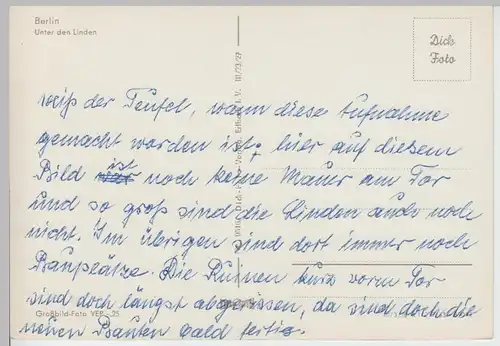 Berlin
Unter den Linden
Dick
Foto
III/23/27
weiß der Teufel, wann diese Aufnahme
gemacht worden ist, hier auf diesem
Bild ist noch keine Mauer am Tor
und so groß sind die Linden auch noch
nicht. Im übrigen sind dort immer noch
Bauplätze. Die Ruinen kurz vorm Tor
sind doch längst abgerissen, da sind doch die
neuen Bauten bald fertig.
Großbild-Foto VEB 25